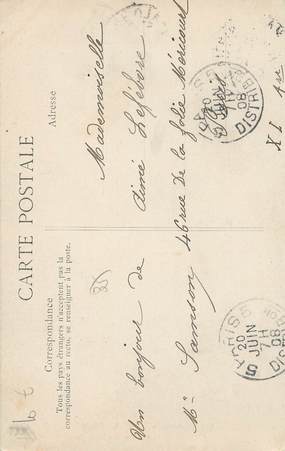 CARTE POSTALE
Correspondance
Tous les pays étrangers n'acceptent pas la
correspondance au recto, se renseigner à la poste.
Adresse
Un bonjour de
Mr Samson
Mademoiselle
Aimé Lefébvre
46 rue de la folie Méricourt
Paris
XI
PARIS
20
5 JUIN
7 H
08
DISTRIBON
DISTRIB
08
20